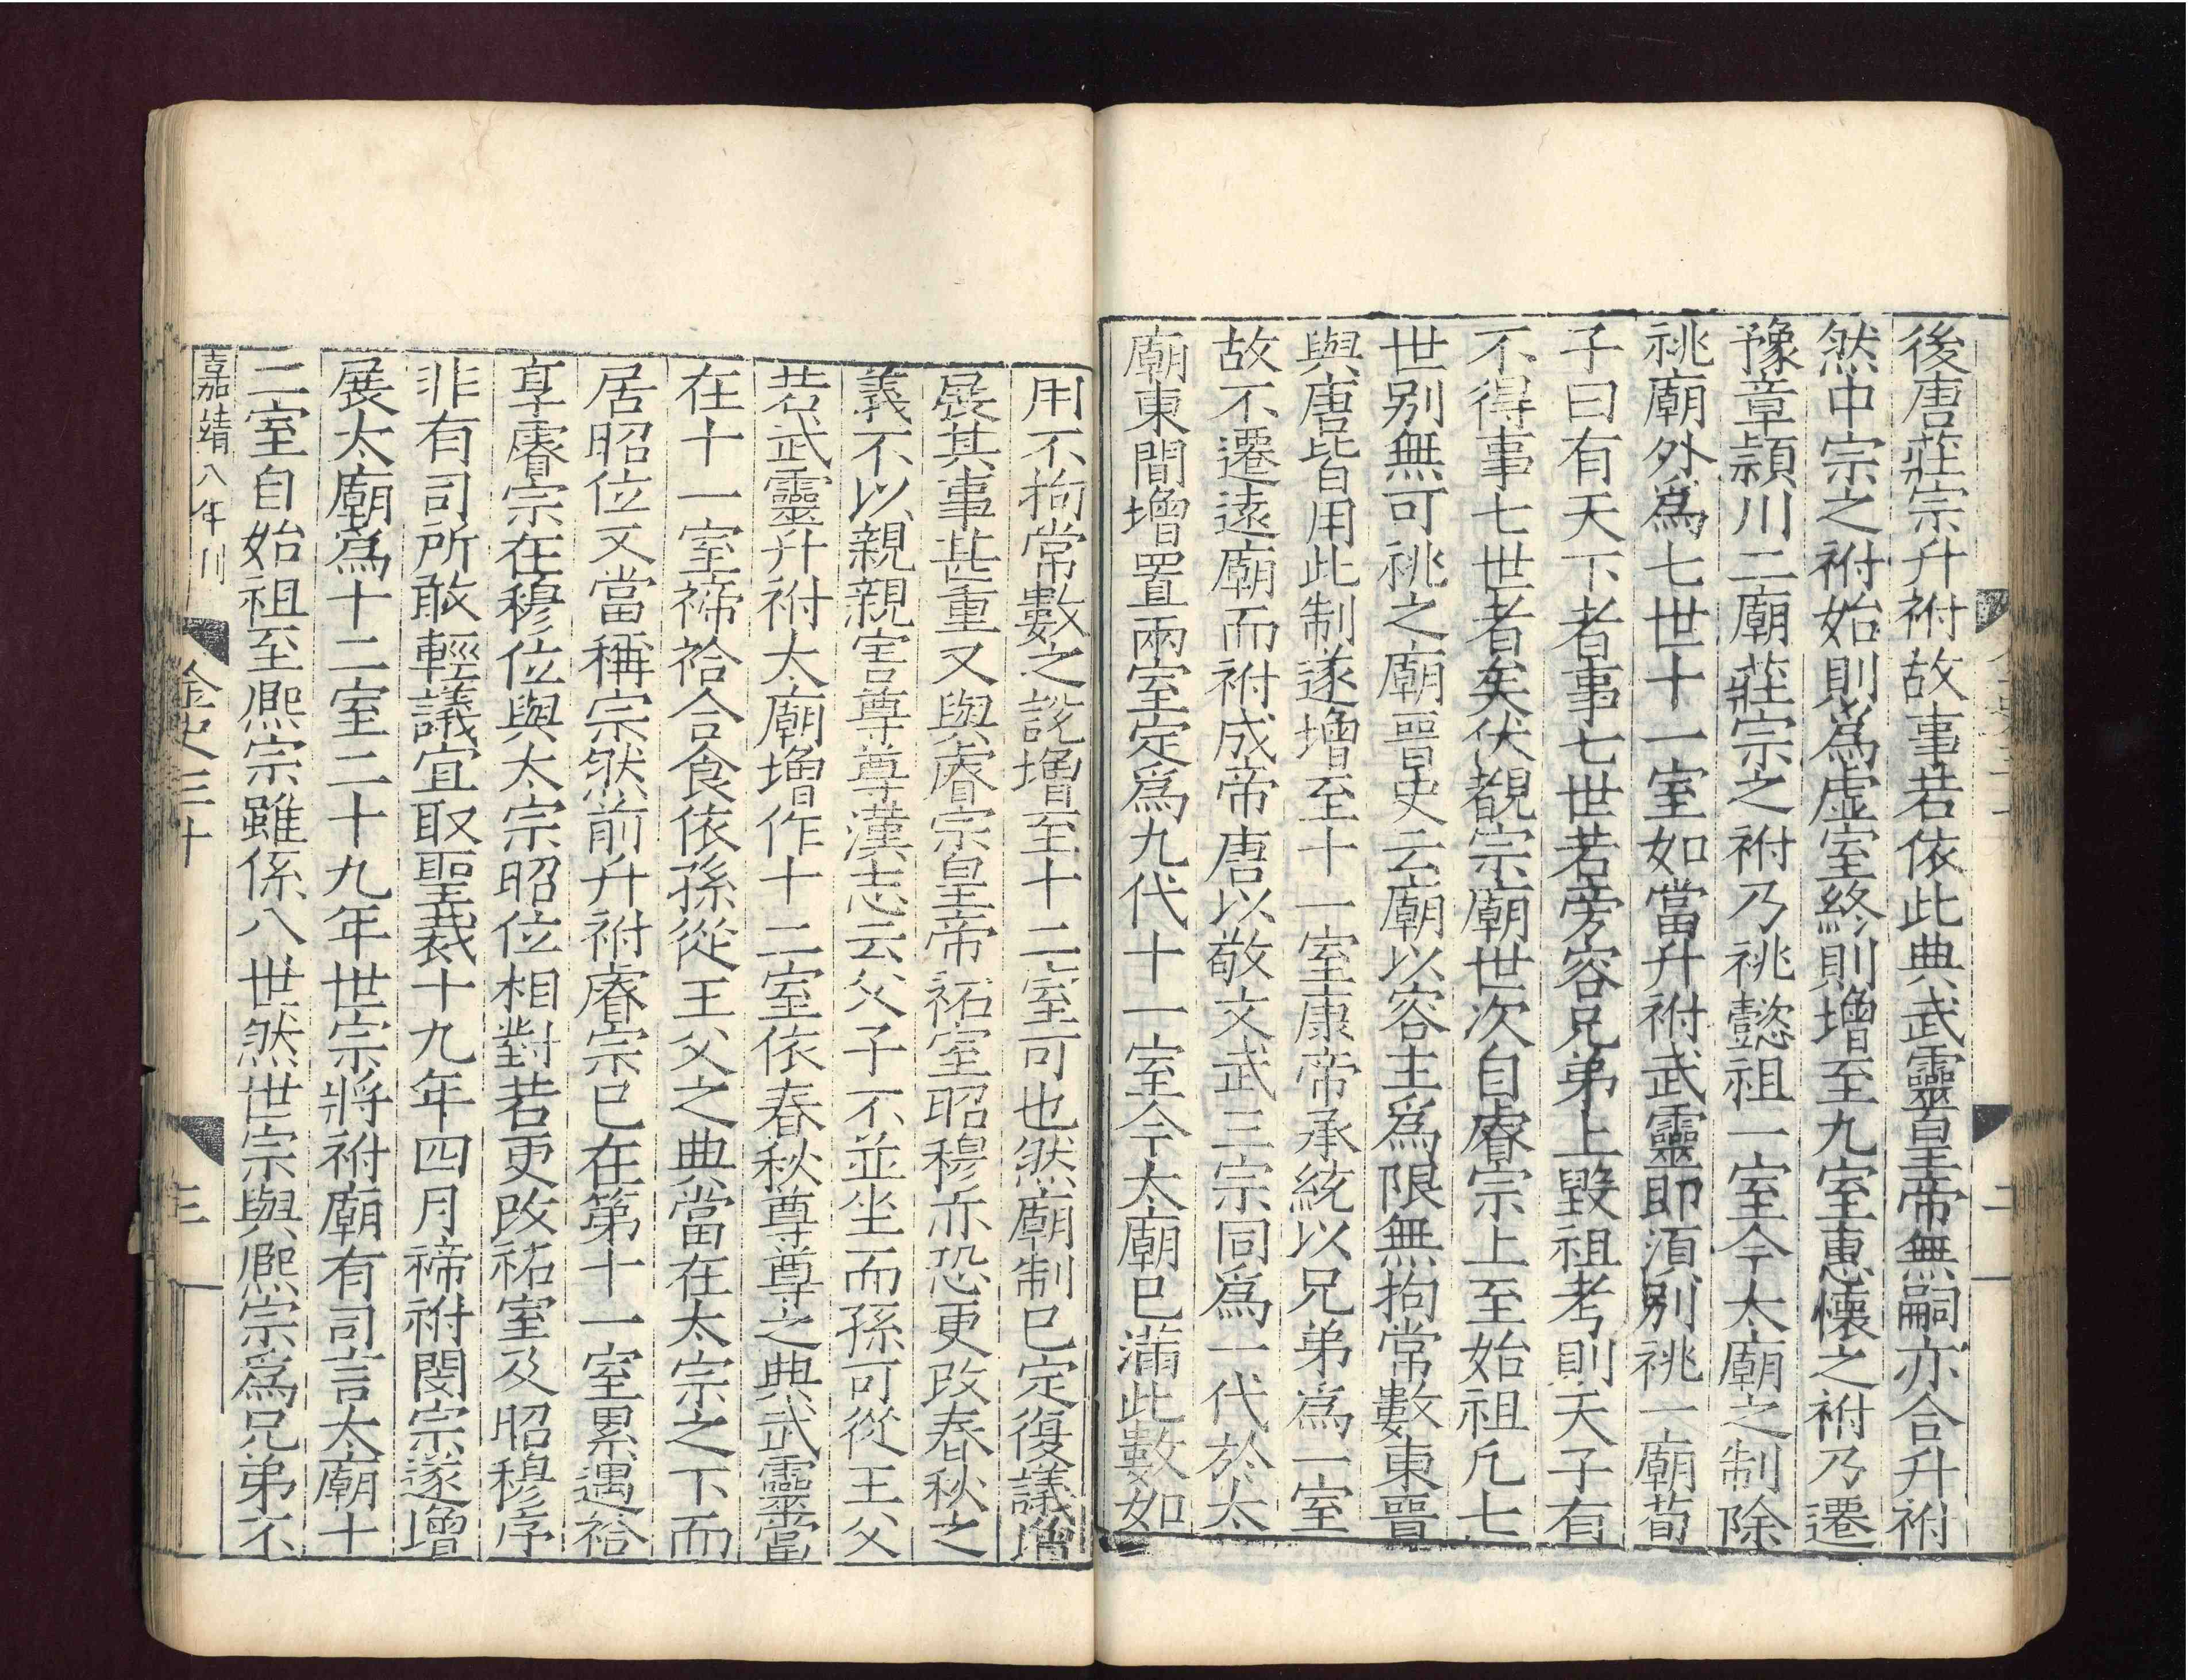 後唐莊宗升祔故事若依此典武靈皇帝無嗣亦合升祔
然中宗之祔始則爲虚室終則增至九室惠懷之祔乃遷
豫章頴川二廟莊宗之祔乃祧懿祖一室今太廟之制除
祧廟外爲七世十一室如當升祔武靈即湏别祧一廟荀
子曰有天下者事七世若旁容兄弟上毀祖考則天子有
不得事七世者矣伏覩宗廟世次自睿宗上至始祖凢七
世别無可祧之廟晉史云廟以容主爲限無拘常數東晉
與唐皆用此制遂增至十一室康帝承統以兄弟爲一室
故不遷遠廟而祔成帝唐以敬文武三宗同爲一代於太
廟東間增置兩室定爲九代十一室今太廟已滿此數如
用不拘常數之説增至十二室可也然廟制已定復議增
展其事甚重又與睿宗皇帝祏室昭穆亦恐更改春秋之
義不以親親害尊尊漢志云父子不並坐而孫可從王父
若武靈升祔太廟增作十二室依春秋尊尊之典武靈當
在十一室禘祫合食依孫從王父之典當在太宗之下而
居昭位又當稱宗然前升祔睿宗已在第十一室累遇祫
享睿宗在穆位與太宗昭位相對若更改祏室及昭穆序
非有司所敢輕議宜取聖裁十九年四月禘祔閔宗遂增
展太廟爲十二室二十九年世宗將祔廟有司言太廟十
二室自始祖至熈宗雖係八世然世宗與熈宗爲兄弟不
嘉靖八年刋
金史三十
三